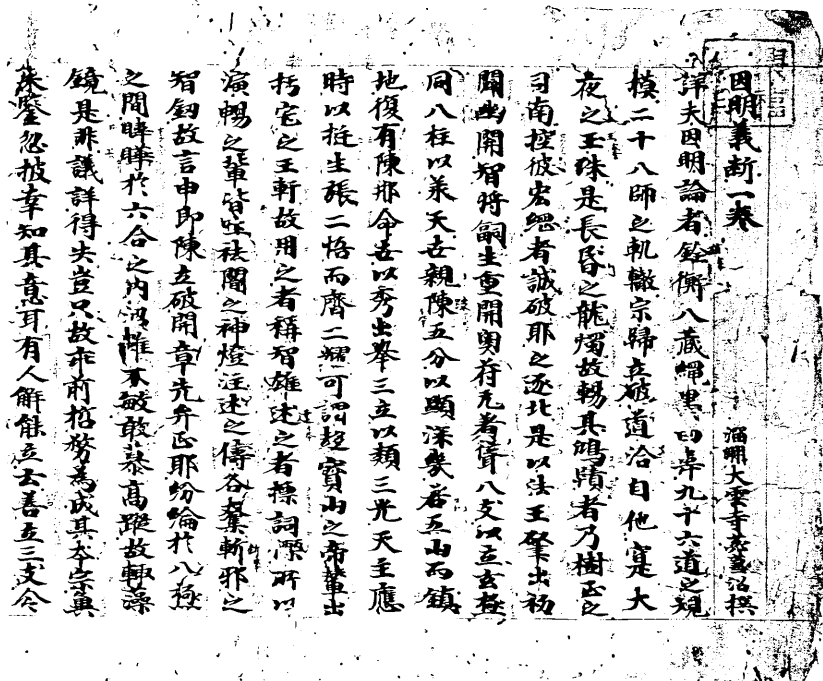 因明義断一卷 淄州大雲寺 沼撰
詳夫因明論者銓衡八藏繩墨四 九十六道之規
模二十八師之軌轍宗歸立破道洽自他寔大
夜之玉珠是長昏之龍燭故暢其鴻 者乃樹正之
司南控彼宏綱者誠破耶之逐北是以法王肇出初
闢幽關智將嗣生重開奧府 聳八支以立玄極
同八柱以承天世親陳五分以顯深幾若五山而鎮
地復有陳那命世以秀出舉三立以類三光天主應
時以挺生張二悟而齊二耀可謂超寶山之帝輦出
朽宅之王軒故用之者稱智雄述之者標詞深所以
演暢之輩皆 祛闇之神燈注述之儔各奮斬邪之
智釰故言申即陳立破開章先弁正耶紛綸於八極
之間暐曄於六合之內沼雖不敏敢慕高蹤故輙藻
鏡是非議詳得失豈只故乖前哲務為成其本宗與
來鑒忽披幸知其意耳有人解能立云善立三支令